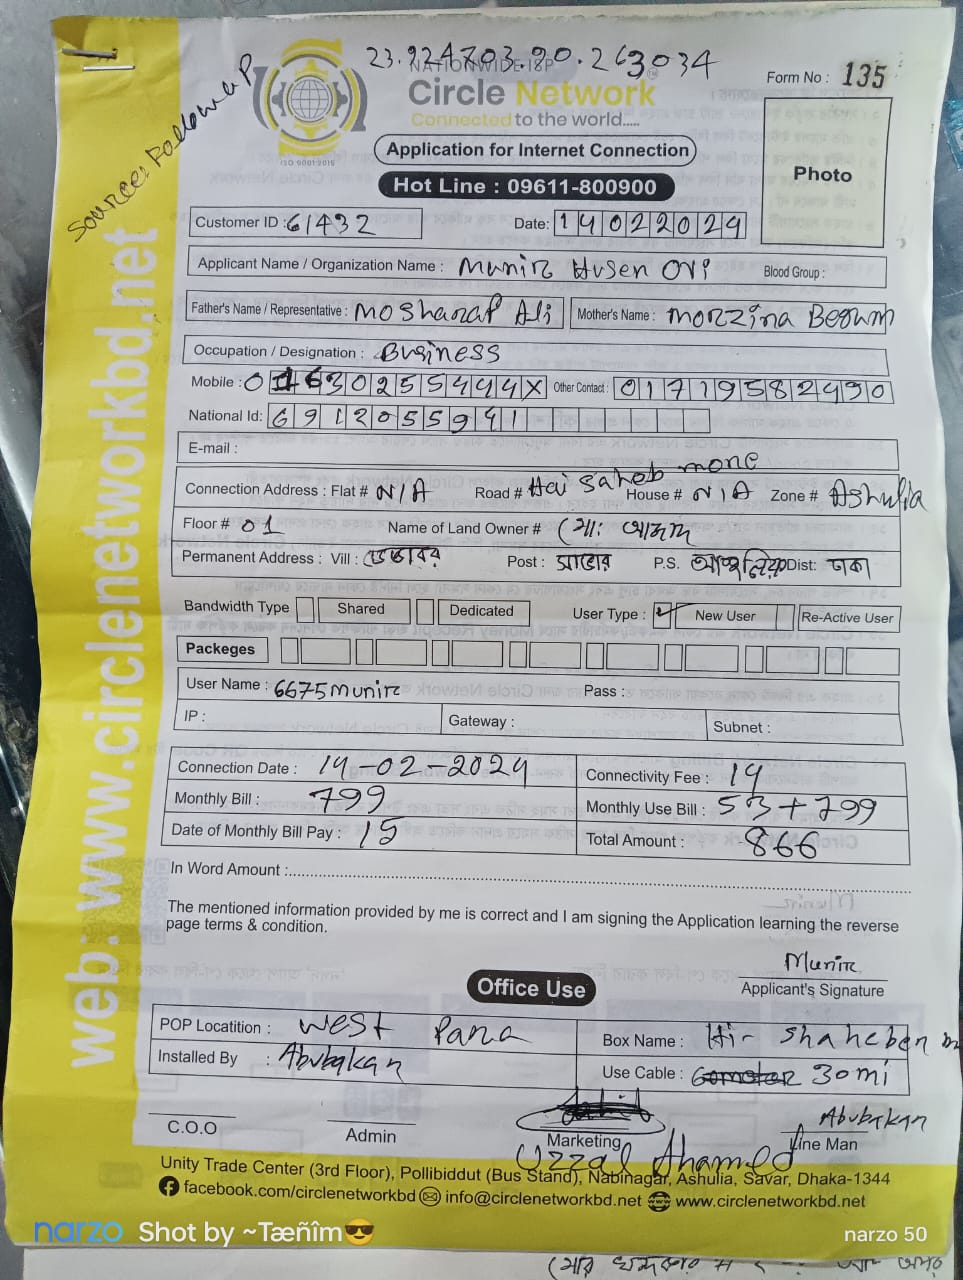 23.924703.90.263034
Source: Followup
NATIONWIDE ISP
Circle Network
Connected to the world.....
ISO 9001:2015
Form No : 135
Application for Internet Connection
Hot Line : 09611-800900
Photo
Customer ID : 61432 Date: 14022024
Applicant Name / Organization Name : Munir Husen Ovi Blood Group :
Father's Name / Representative : Mosharaf Ali Mother's Name : Morzina Begum
Occupation / Designation : Business
Mobile : 01630255444X Other Contact : 01719582490
National Id: 6912055941
E-mail :
Connection Address : Flat # N/A Road # Hai saheb mone House # N/A Zone # Ashulia
Floor # 01 Name of Land Owner # মো: আজম
Permanent Address : Vill : ডেন্ডাবর Post : সাভার P.S. আশুলিয়া Dist: ঢাকা
Bandwidth Type Shared Dedicated User Type : ✓ New User Re-Active User
Packeges
User Name : 6675munir Pass :
IP : Gateway : Subnet :
Connection Date : 14-02-2024 Connectivity Fee : 14
Monthly Bill : 799 Monthly Use Bill : 53+799
Date of Monthly Bill Pay : 15 Total Amount : 866
In Word Amount :
The mentioned information provided by me is correct and I am signing the Application learning the reverse
page terms & condition.
Munir
Applicant's Signature
Office Use
POP Locatition : West Para Box Name : Hi- Shaheber
Installed By : Abubakar Use Cable : 30mi
Abubakar
C.O.O Admin Marketing Line Man
Uzzal Ahamed
Unity Trade Center (3rd Floor), Pollibiddut (Bus Stand), Nabinagar, Ashulia, Savar, Dhaka-1344
facebook.com/circlenetworkbd info@circlenetworkbd.net www.circlenetworkbd.net
web: www.circlenetworkbd.net
narzo Shot by ~Tæñîm😎 narzo 50